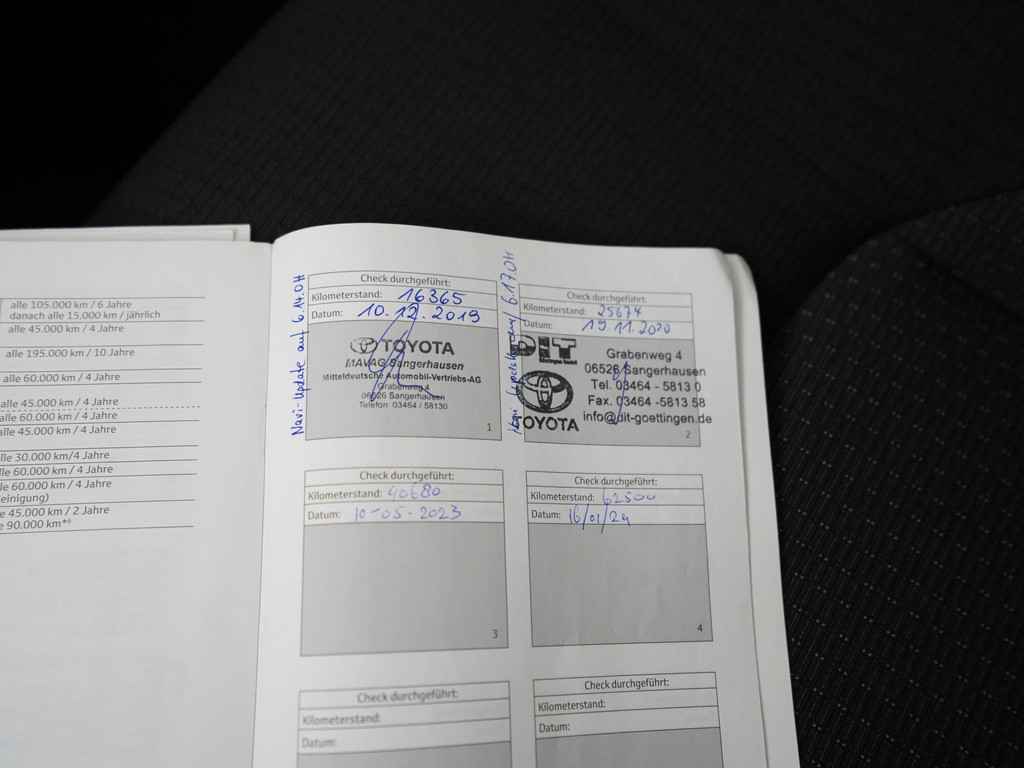 alle 105.000 km / 6 Jahre
danach alle 15.000 km / jährlich
alle 45.000 km / 4 Jahre
alle 195.000 km / 10 Jahre
alle 60.000 km / 4 Jahre
alle 45.000 km / 4 Jahre
alle 60.000 km / 4 Jahre
alle 45.000 km / 4 Jahre
alle 30.000 km/4 Jahre
alle 60.000 km / 4 Jahre
alle 60.000 km / 4 Jahre
einigung)
e 45.000 km / 2 Jahre
e 90.000 km*⁶
Navi-Update auf 6.14.0H
Check durchgeführt:
Kilometerstand: 16365
Datum: 10.12.2019
TOYOTA
MAVAG Sangerhausen
Mitteldeutsche Automobil-Vertriebs-AG
Grabenweg 4
06526 Sangerhausen
Telefon 03464 / 58130
1
6.17.0H
Check durchgeführt:
Kilometerstand: 25674
Datum: 19.11.2020
DIT
TOYOTA
Grabenweg 4
06526 Sangerhausen
Tel. 03464 - 5813 0
Fax. 03464 -5813 58
info@dit-goettingen.de
2
Check durchgeführt:
Kilometerstand: 40680
Datum: 10-05-2023
3
Check durchgeführt:
Kilometerstand: 62500
Datum: 16/01/24
4
Check durchgeführt:
Kilometerstand:
Datum:
Check durchgeführt:
Kilometerstand:
Datum: